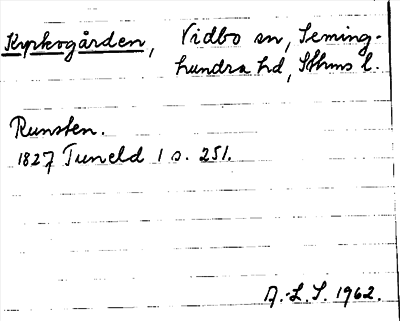 Kyrkogården, Vidbo sn, Seming-
hundra hd, Sthms l.
Runsten.
1827 Tuneld 1 s. 251.
A.-L.S. 1962.